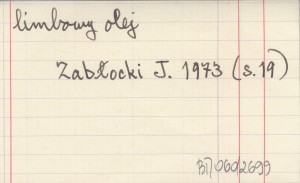 limbowy olej
Zabłocki J. 1973 (s.19)
BJ/060/2699